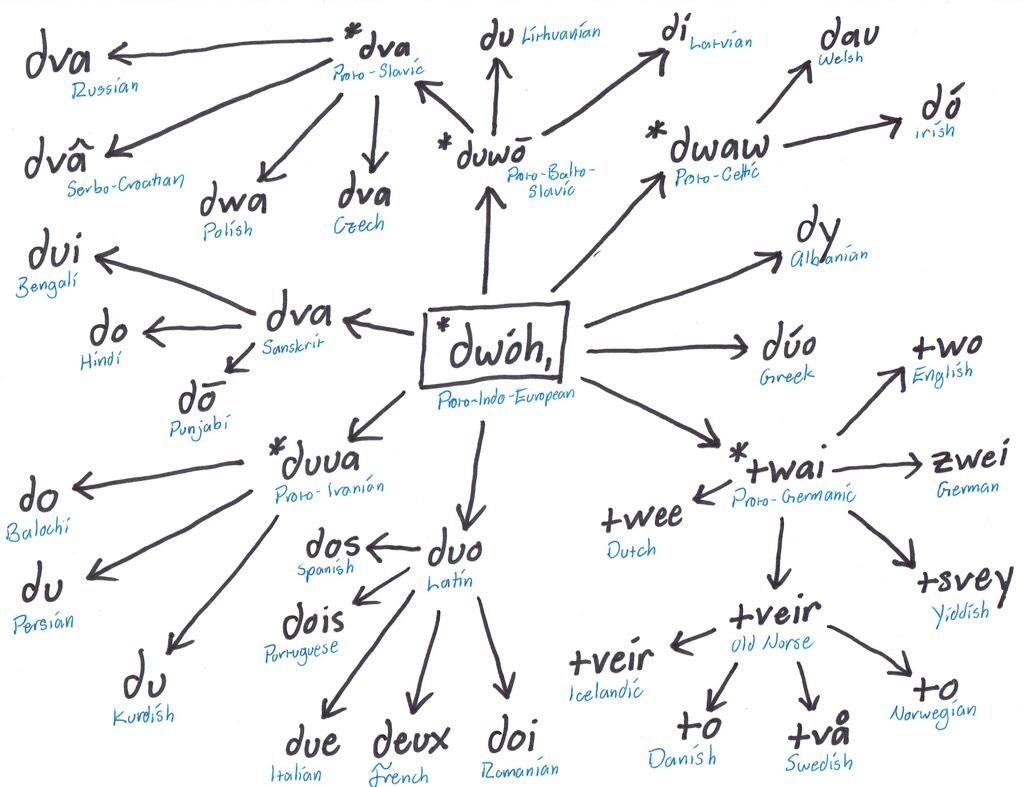 dva
Russian
*dva
Proto-Slavic
du Lithuanian
di Latvian
dau
Welsh
dó
Irish
dvâ
Serbo-Croatian
dwa
Polish
dva
Czech
*duwō
Proto-Balto-
Slavic
*dwaw
Proto-Celtic
dui
Bengali
dy
Albanian
do
Hindi
dva
Sanskrit
dō
Punjabi
*dwóh₁
Proto-Indo-European
dúo
Greek
two
English
*duua
Proto-Iranian
*twai
Proto-Germanic
zwei
German
do
Balochi
du
Persian
du
Kurdish
dos
Spanish
duo
Latin
dois
Portuguese
due
Italian
deux
French
doi
Romanian
twee
Dutch
tsvey
Yiddish
tveir
Old Norse
tveir
Icelandic
to
Danish
två
Swedish
to
Norwegian